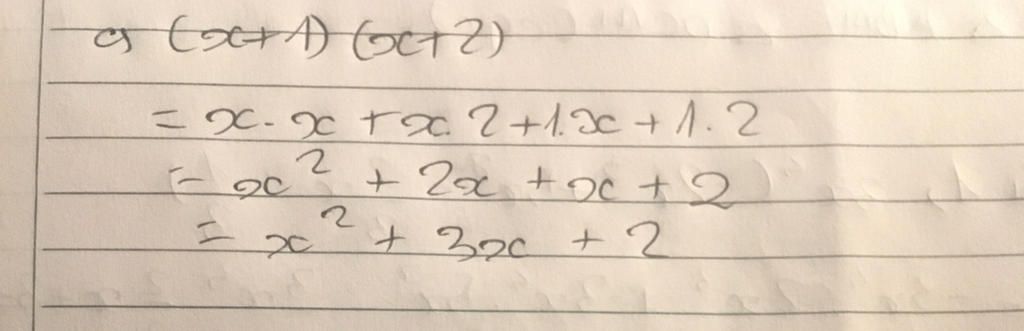 a) (x+1)(x+2)
= x. x + x. 2 + 1.x + 1. 2
= x² + 2x + x + 2
= x² + 3x + 2